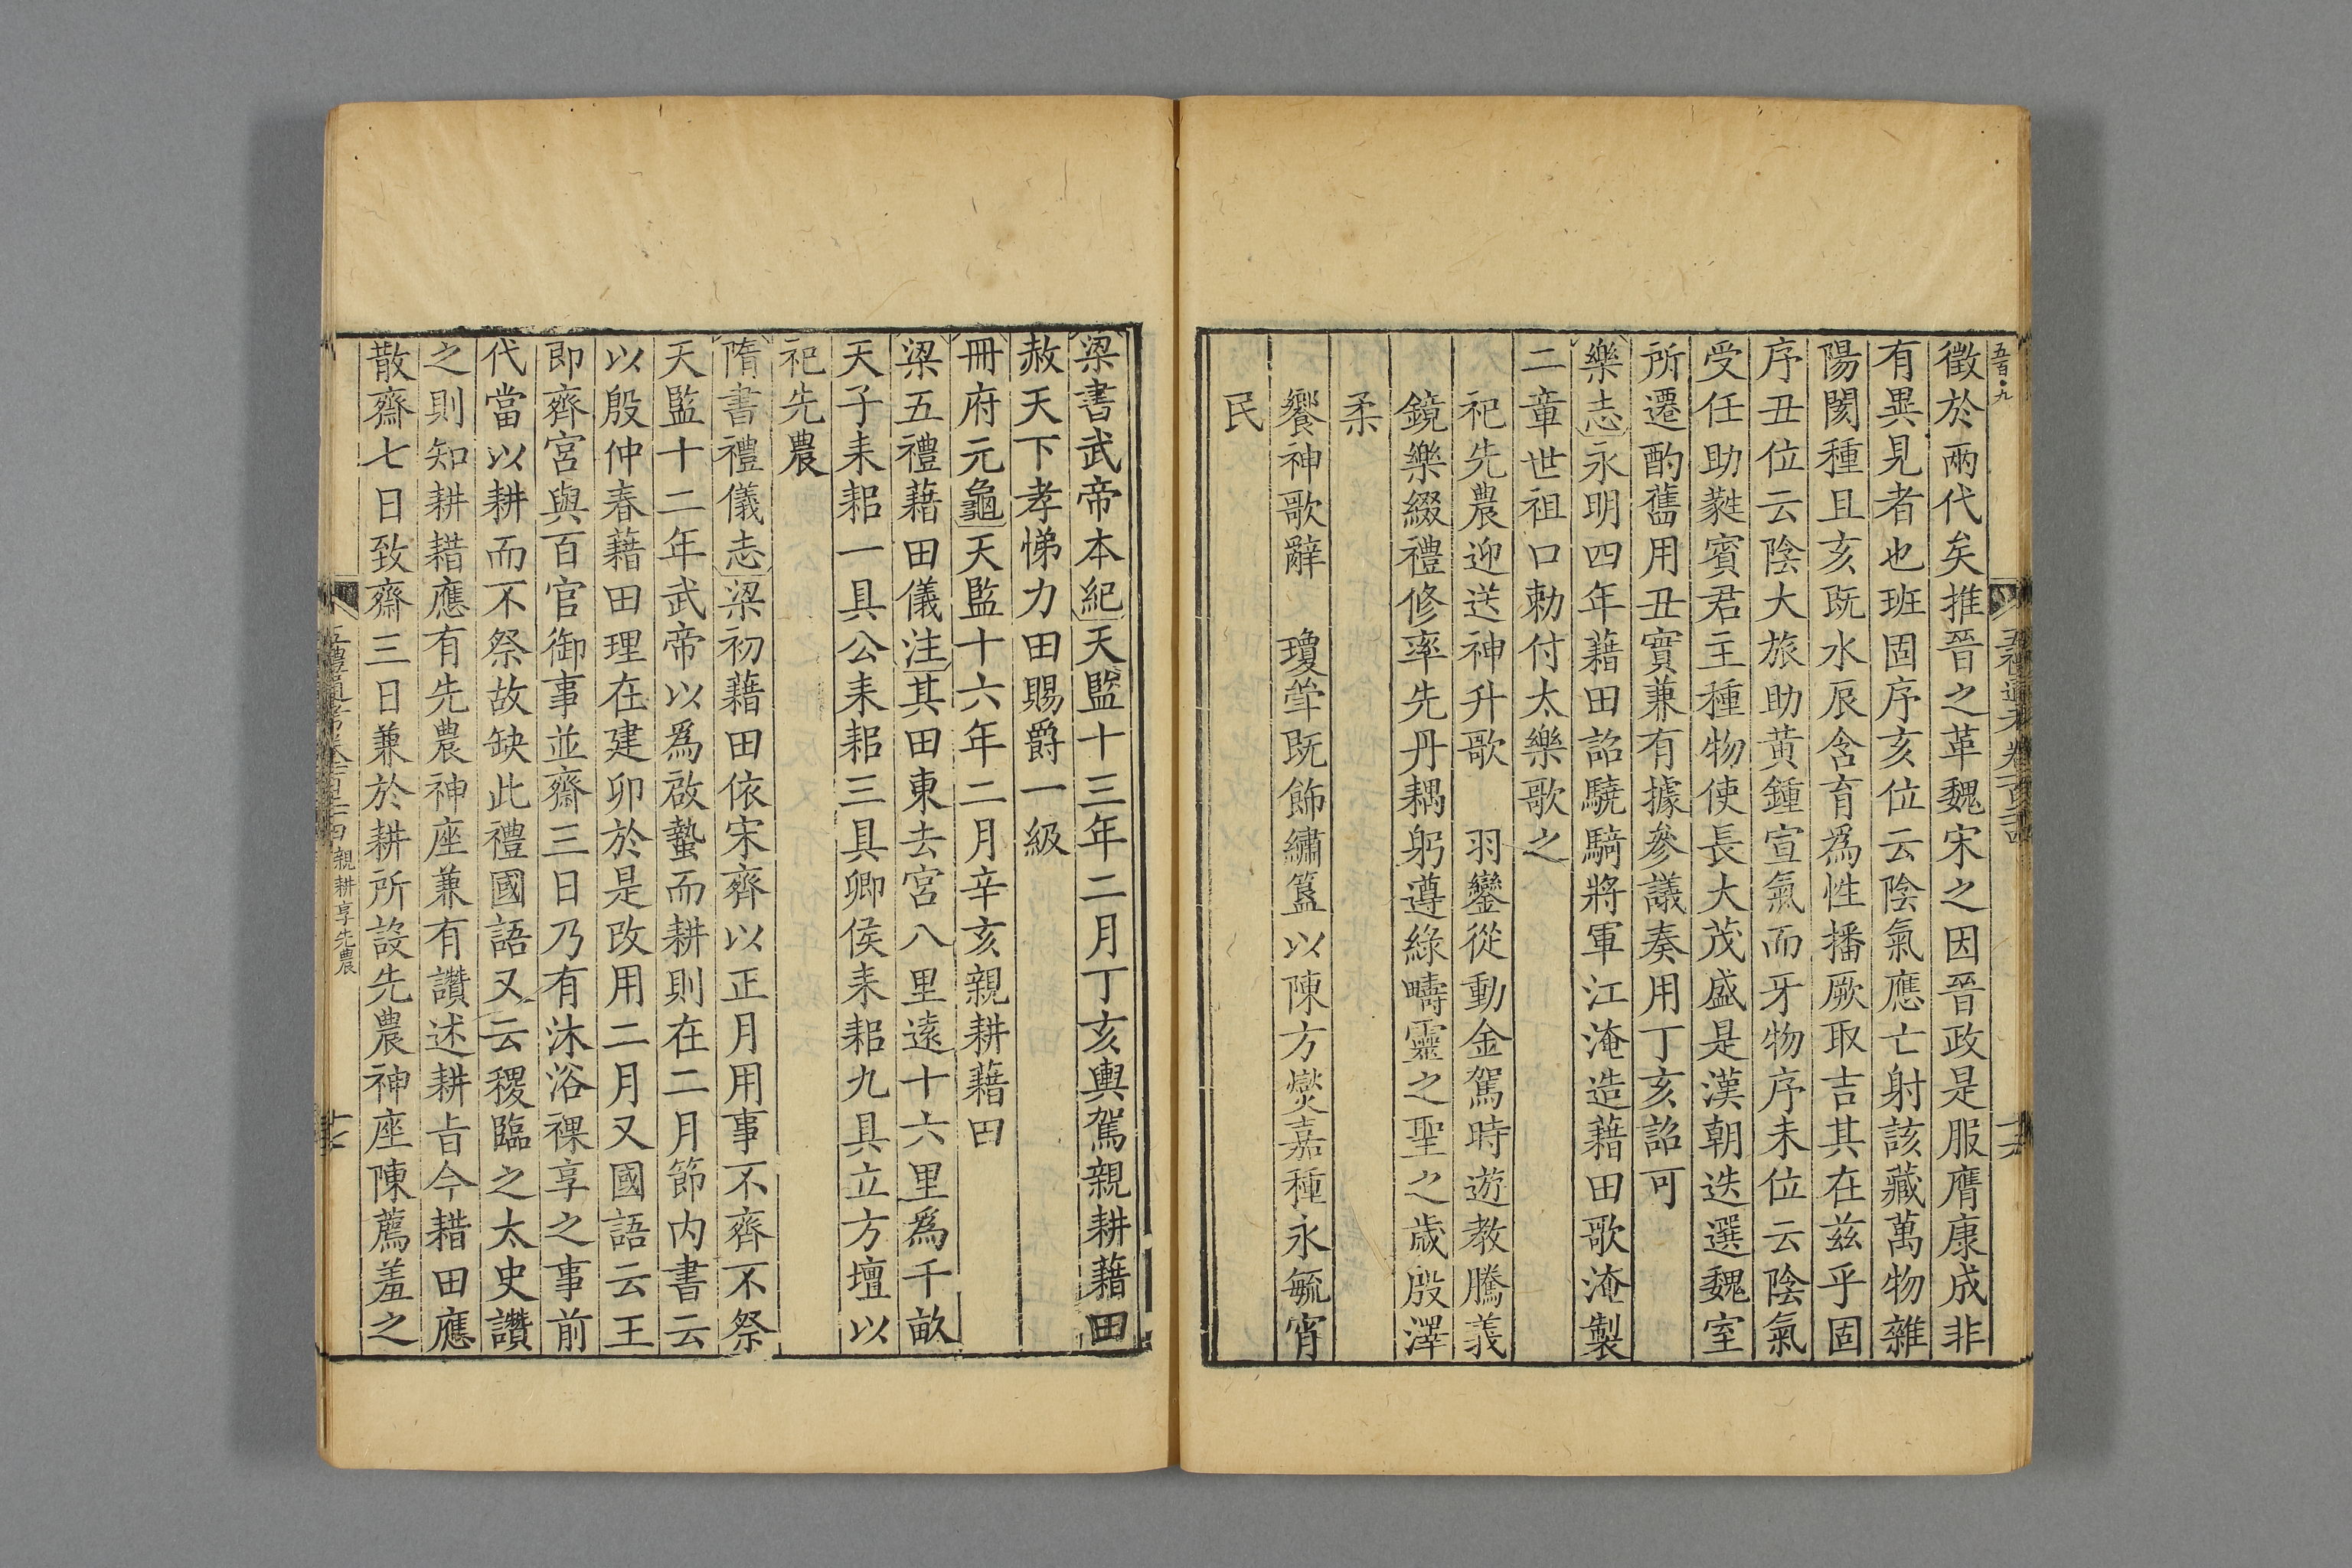 徵於兩代矣推晉之革魏宋之因晉政是服膺康成非
有異見者也班固序亥位云陰氣應亡射該藏萬物雜
陽閡種且亥既水辰含育爲性播厥取吉其在兹乎固
序丑位云陰大旅助黃鍾宣氣而牙物序未位云陰氣
受任助蕤賓君主種物使長大茂盛是漢朝迭選魏室
所遷酌舊用丑實兼有據參議奏用丁亥詔可
樂志永明四年藉田詔驍騎將軍江淹造藉田歌淹製
二章世祖口勅付太樂歌之
祀先農迎送神升歌　羽鑾從動金駕時遊教騰義
鏡樂綴禮修率先丹耦躬遵綠疇靈之聖之歲殷澤
柔
饗神歌辭　瓊斝既飾繡簋以陳方燮嘉種永毓宵
民
梁書武帝本紀天監十三年二月丁亥輿駕親耕藉田
赦天下孝悌力田賜爵一級
冊府元龜天監十六年二月辛亥親耕藉田
梁五禮藉田儀注其田東去宮八里遠十六里爲千畝
天子耒耜一具公耒耜三具卿侯耒耜九具立方壇以
祀先農
隋書禮儀志梁初藉田依宋齊以正月用事不齊不祭
天監十二年武帝以爲啟蟄而耕則在二月節内書云
以殷仲春藉田理在建卯於是改用二月又國語云王
即齊宮與百官御事並齋三日乃有沐浴祼享之事前
代當以耕而不祭故缺此禮國語又云稷臨之太史讚
之則知耕耤應有先農神座兼有讚述耕旨今耤田應
散齋七日致齋三日兼於耕所設先農神座陳薦羞之
親耕享先農